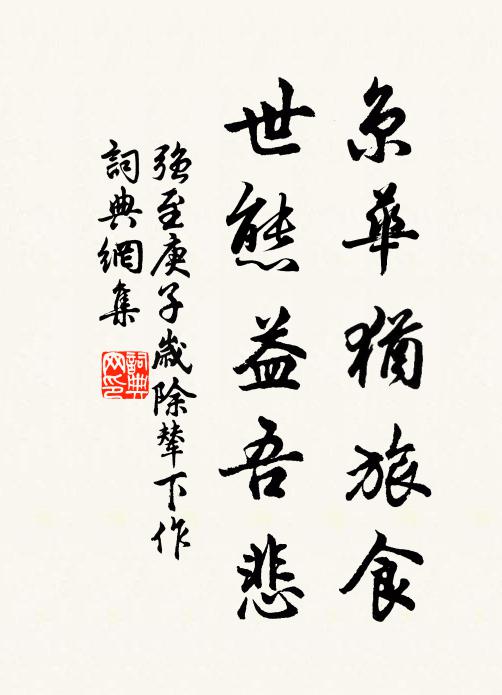 京華猶旅食
世態益吾悲
強至庚子歲除輦下作
詞典網集
詞典
网印